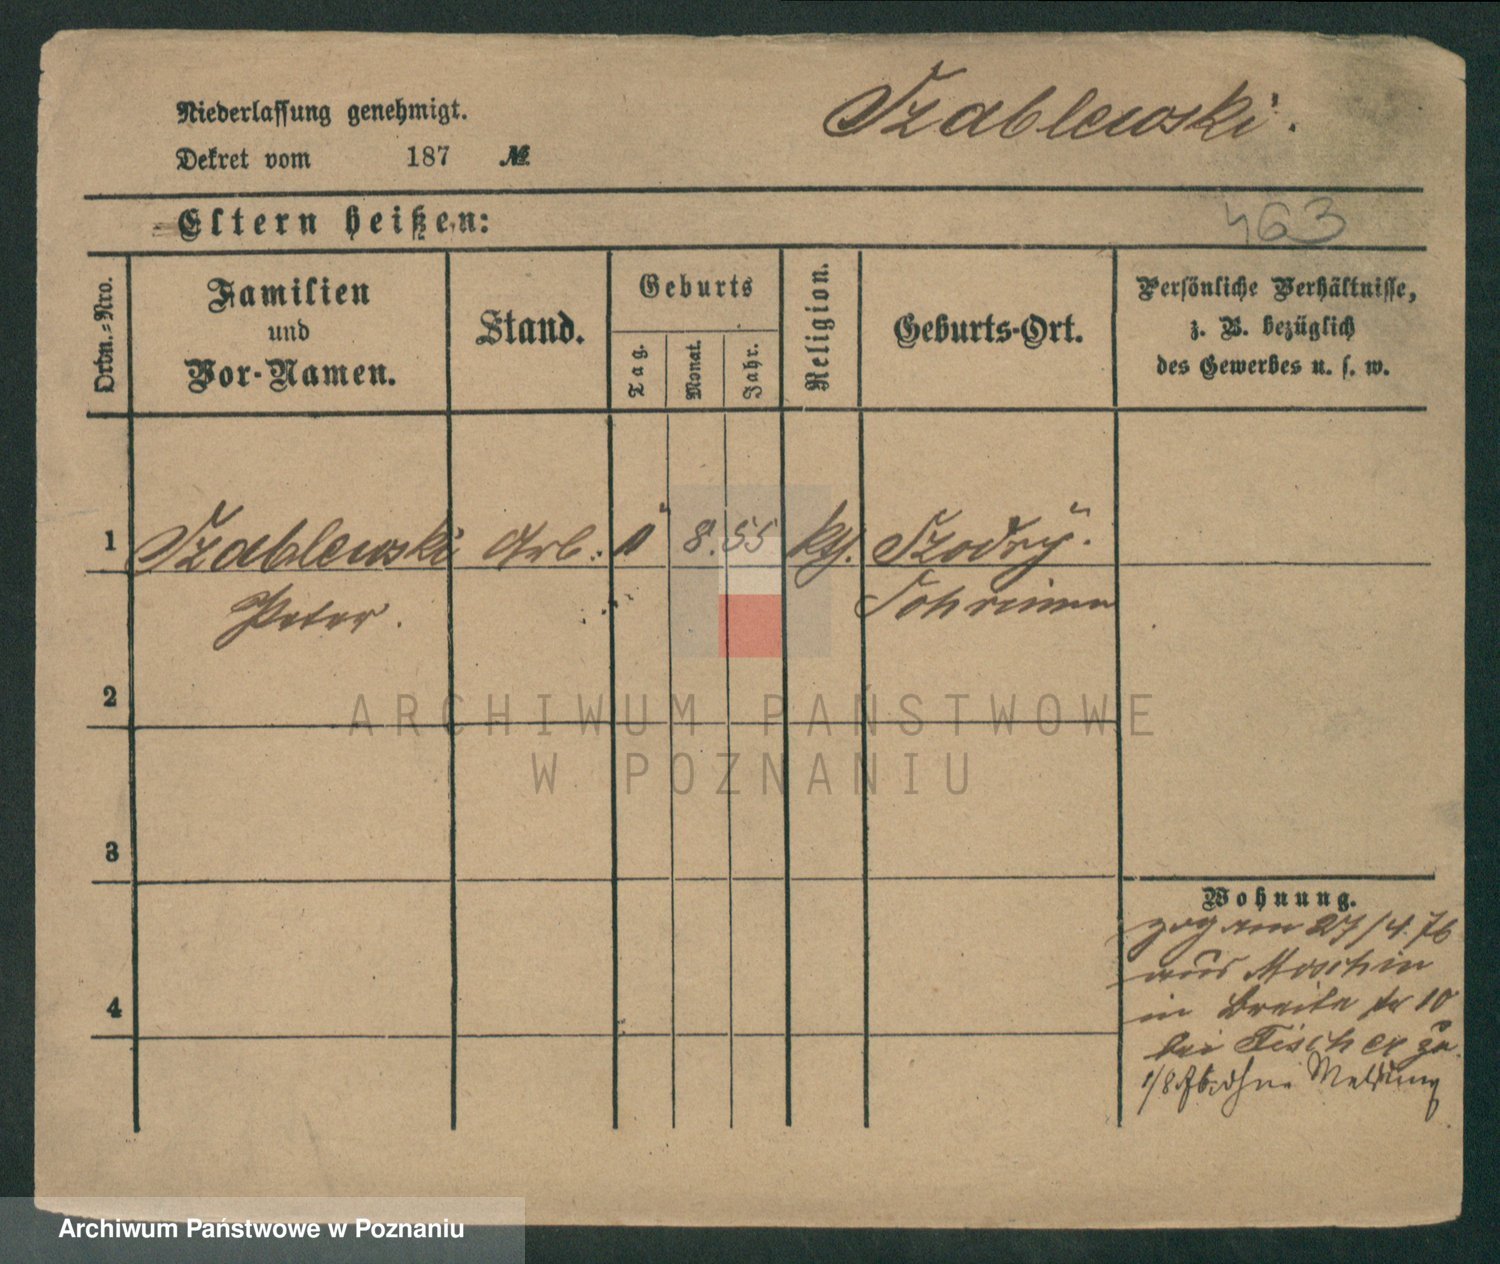 Szablewski.
Niederlassung genehmigt.
Dekret vom 187 №
Eltern heißen:
463
Ordn.-Nro.
Familien
und
Vor-Namen.
Stand.
Geburts
Tag.
Monat.
Jahr.
Religion.
Geburts-Ort.
Persönliche Verhältnisse,
z. B. bezüglich
des Gewerbes u. s. w.
1 Szablewski Arb. 8. 55 kth.
Peter. Schrimm
2
3
4
Wohnung.
zog am 27/4.76
aus Moschin
in Breite str 10
bei Fischer zu
1/8.76. ohne Meldung
ARCHIWUM PAŃSTWOWE
W POZNANIU
Archiwum Państwowe w Poznaniu